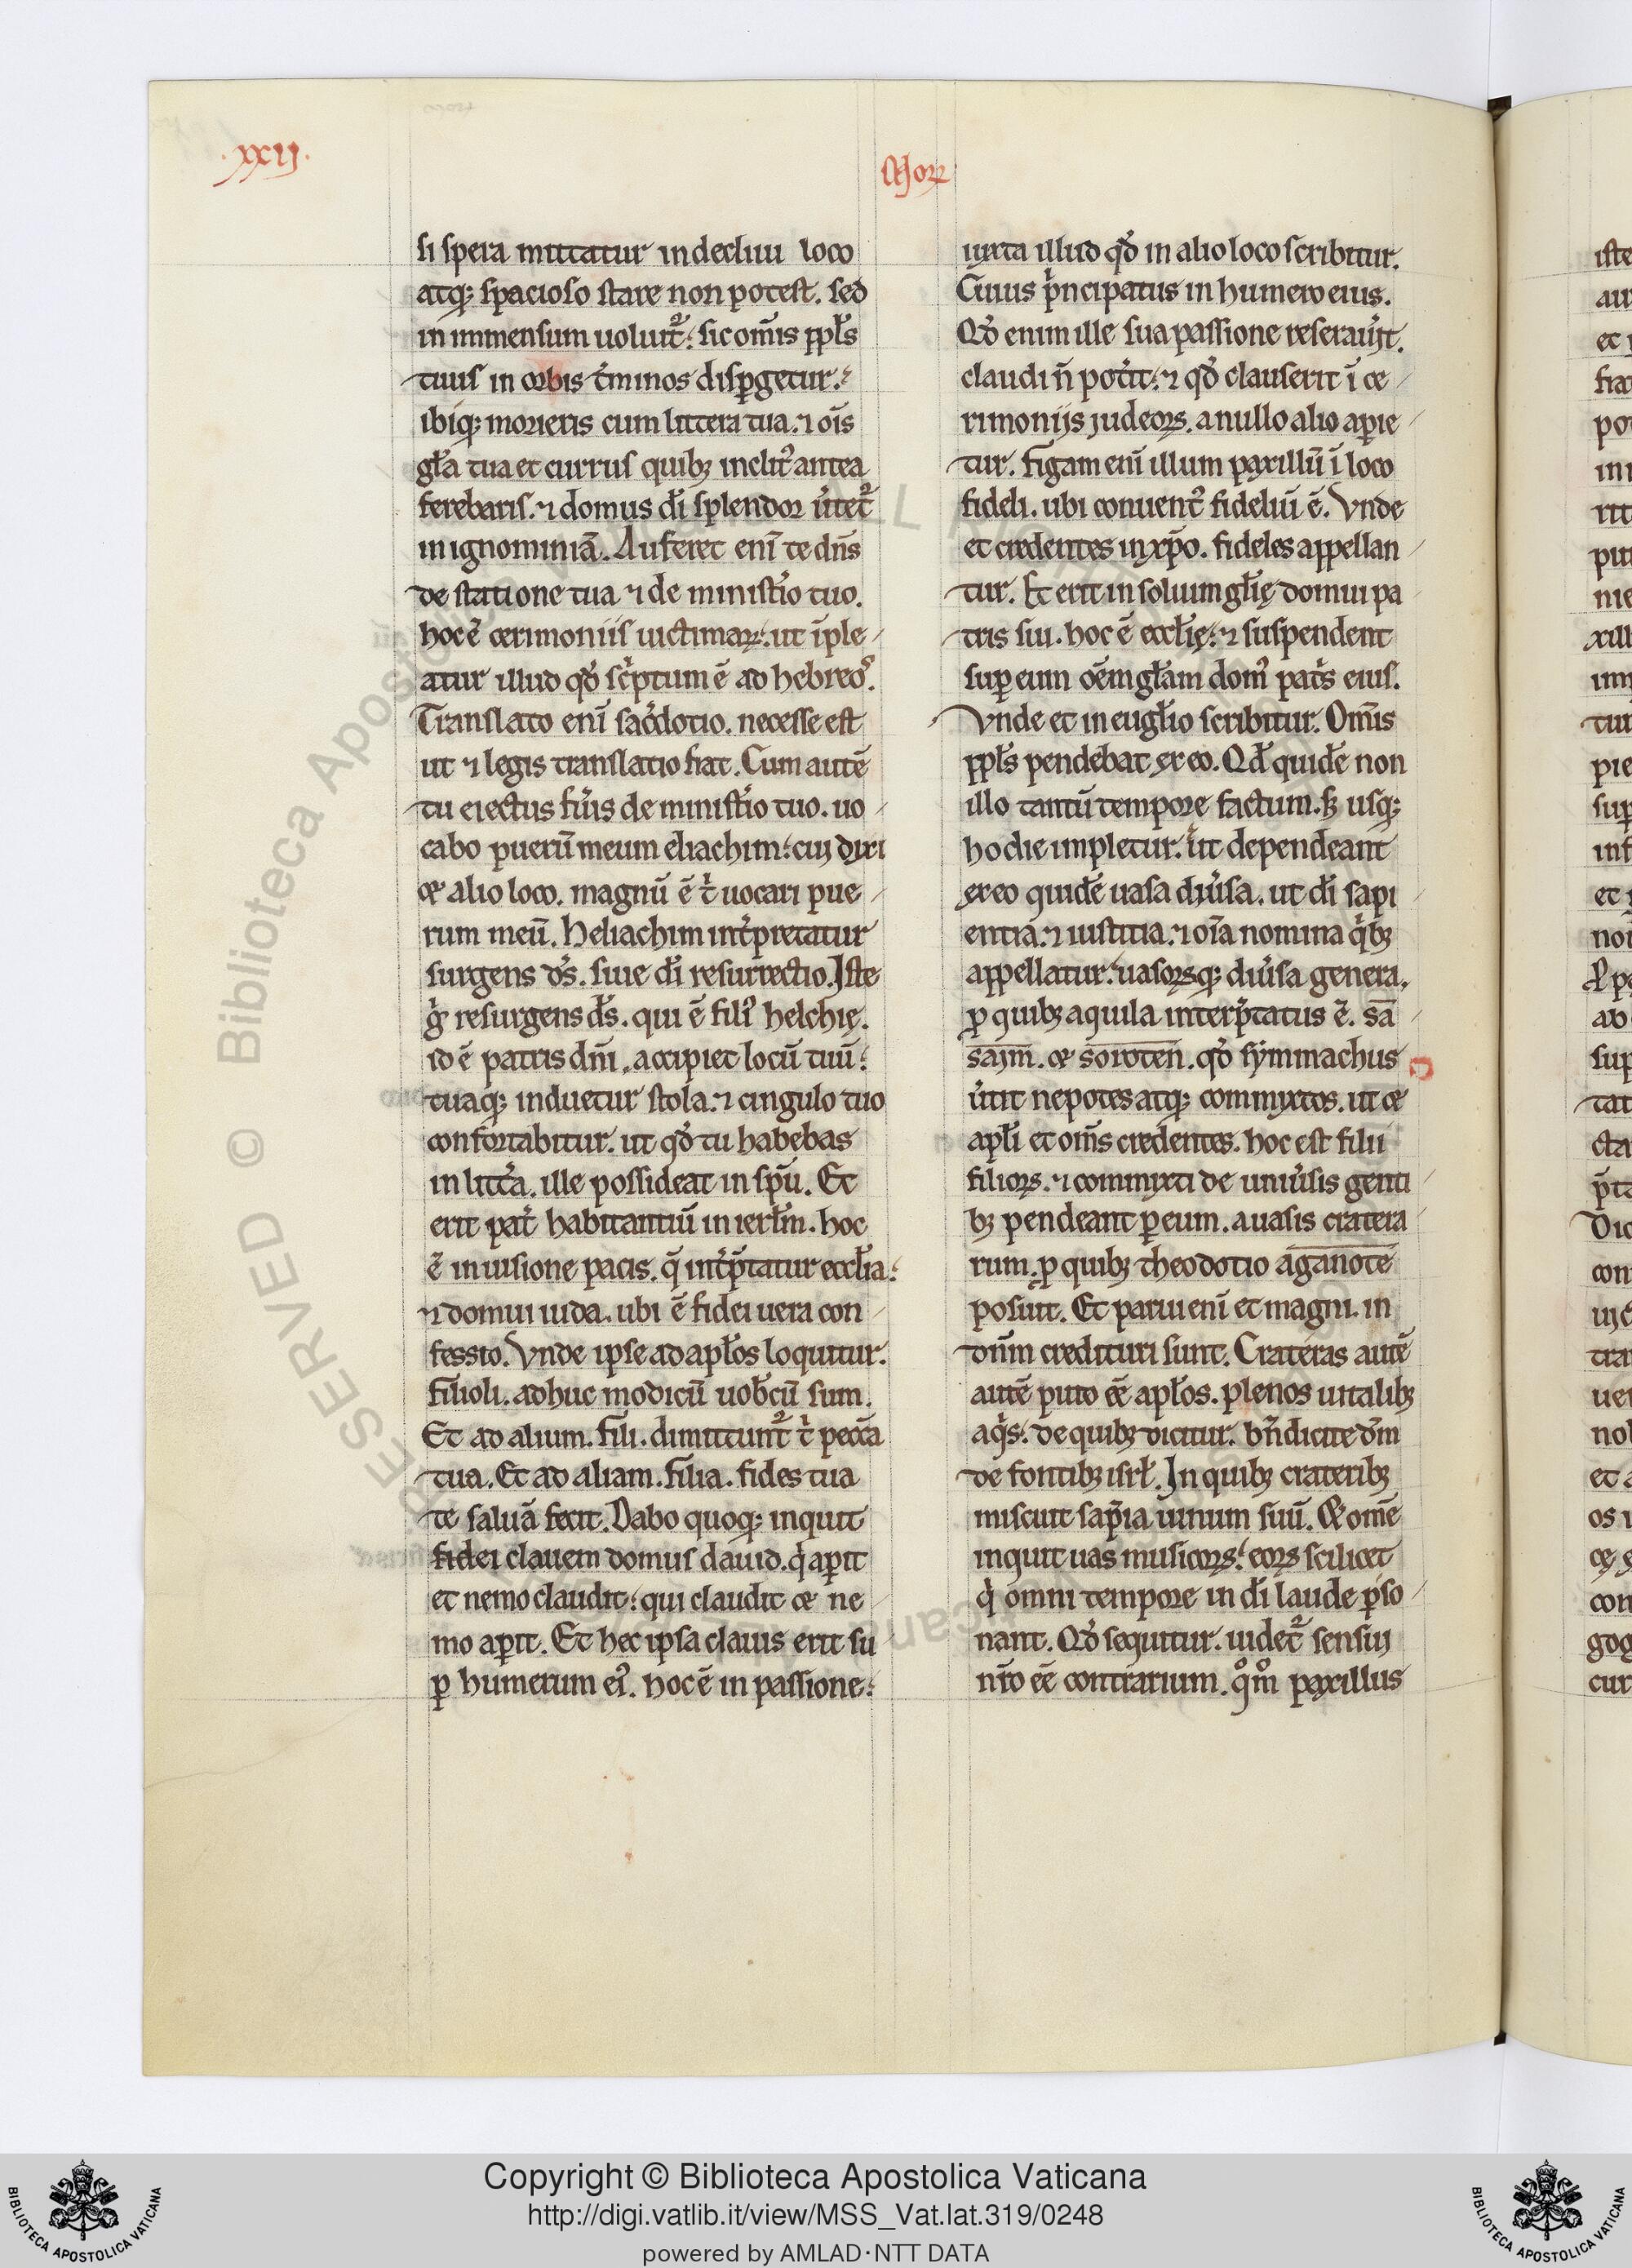 .xxij.
Moꝝ
si spera mittatur in decliui loco
atq; spacioso stare non potest. sed
in immensum uoluit᷑: sic om̄is ppl̄s
tuus in orbis t̾minos disꝑgetur.
ibiq; morieris cum littera tua. ⁊ oīs
gl̄a tua et currus quibꝫ inclit᾿ antea
ferebaris. ⁊ domus dī splendor u̾tet᷑
in ignominiā. Auferet enī te dn̄s
de statione tua ⁊ de minist̾io tuo.
hoc ē cerimoniis uictimaꝝ: ut īple
atur illud qd̾ sc̾ptum ē ad hebreo᾿.
Translato enī sac̾dotio. necesse est
ut ⁊ legis translatio fiat. Cum autē
tu eiectus fu̾is de minist̾io tuo. uo
cabo puerū meum eliachim: cui dixi
et alio loco. magnū ē t̾ uocari pue
rum meū. Heliachim int̾pretatur
surgens ds̄. siue dī resurrectio. Iste
g̾ resurgens ds̄. qui ē fili᾿ helchię.
id ē patris dn̄i. accipiet locū tuū:
tuaq; induetur stola. ⁊ cingulo tuo
confortabitur. ut qd̾ tu habebas
in litt̾a. ille possideat in sp̄u. Et
erit pat̾ habitantiū in ierl̄m. hoc
ē in uisione pacis. q̄ int̾p̄tatur eccl̄ia:
⁊ domui iuda. ubi ē fidei uera con
fessio. Vnde ipse ad apl̄os loquitur.
Filioli. adhuc modicū uob̄cū sum.
Et ad alium. Fili. dimittunt᷑ t̾ pecc̄a
tua. Et ad aliam. Filia. fides tua
te saluā fecit. Dabo quoq; inquit
fidei clauem domus dauid. q̾ aꝑit
et nemo claudit: qui claudit et ne
mo aꝑit. Et hec ipsa clauis erit su
ꝑ humerum ei᾿. hoc ē in passione:
iuxta illud qd̾ in alio loco scribitur.
Cuius p̾ncipatus in humero eius.
Qd̾ enim ille sua passione reserau̾it.
claudi n̄ pot̾it: ⁊ qd̾ clauserit ī ce
rimoniis iudeoꝝ. a nullo alio aꝑie
tur. Figam enī illum paxillū ī loco
fideli. ubi conuent᾿ fideliū ē. Vnde
et credentes in xp̄o. fideles appellan
tur. Et erit in solium gl̄ię domui pa
tris sui. hoc ē eccl̄ię: ⁊ suspendent
suꝑ eum oēm gl̄am dom᾿ pat̾s eius.
Vnde et in eugl̄io scribitur. Om̄is
ppl̄s pendebat ex eo. Qd̄ quidē non
illo tantū tempore factum. sꝫ usq;
hodie impletur. ut dependeant
ex eo quidē uasa diu̾sa. ut dī sapi
entia. ⁊ iustitia. ⁊ oīa nomina q̾bꝫ
appellatur: uasoꝝq; diu̾sa genera.
ꝓ quibꝫ aquila interp̾tatus ē. sa
saim. et soroten. qd̾ symmachus
u̾tit nepotes atq; commixtos. ut et
apl̄i et om̄s credentes. hoc est filii
filioꝝ. ⁊ commixti de uniu̾sis genti
bꝫ pendeant ꝑ eum. a uasis cratera
rum. ꝓ quibꝫ theodotio aganote
posuit. Et parui enī et magni. in
dn̄m credituri sunt. Crateras autē
autē puto eē apl̄os. plenos uitalibꝫ
aq̾s. de quibꝫ dicitur. bn̄dicite dn̄m
de fontibꝫ isrl̄. In quibꝫ crateribꝫ
miscuit sap̄ia uinum suū. Et omē
inquit uas musicoꝝ: eoꝝ scilicet
q̾ omni tempore in dī laude ꝑso
nant. Qd̾ sequitur. uidet᷑ sensui
nr̄o eē contrarium. qͦm̊ paxillus